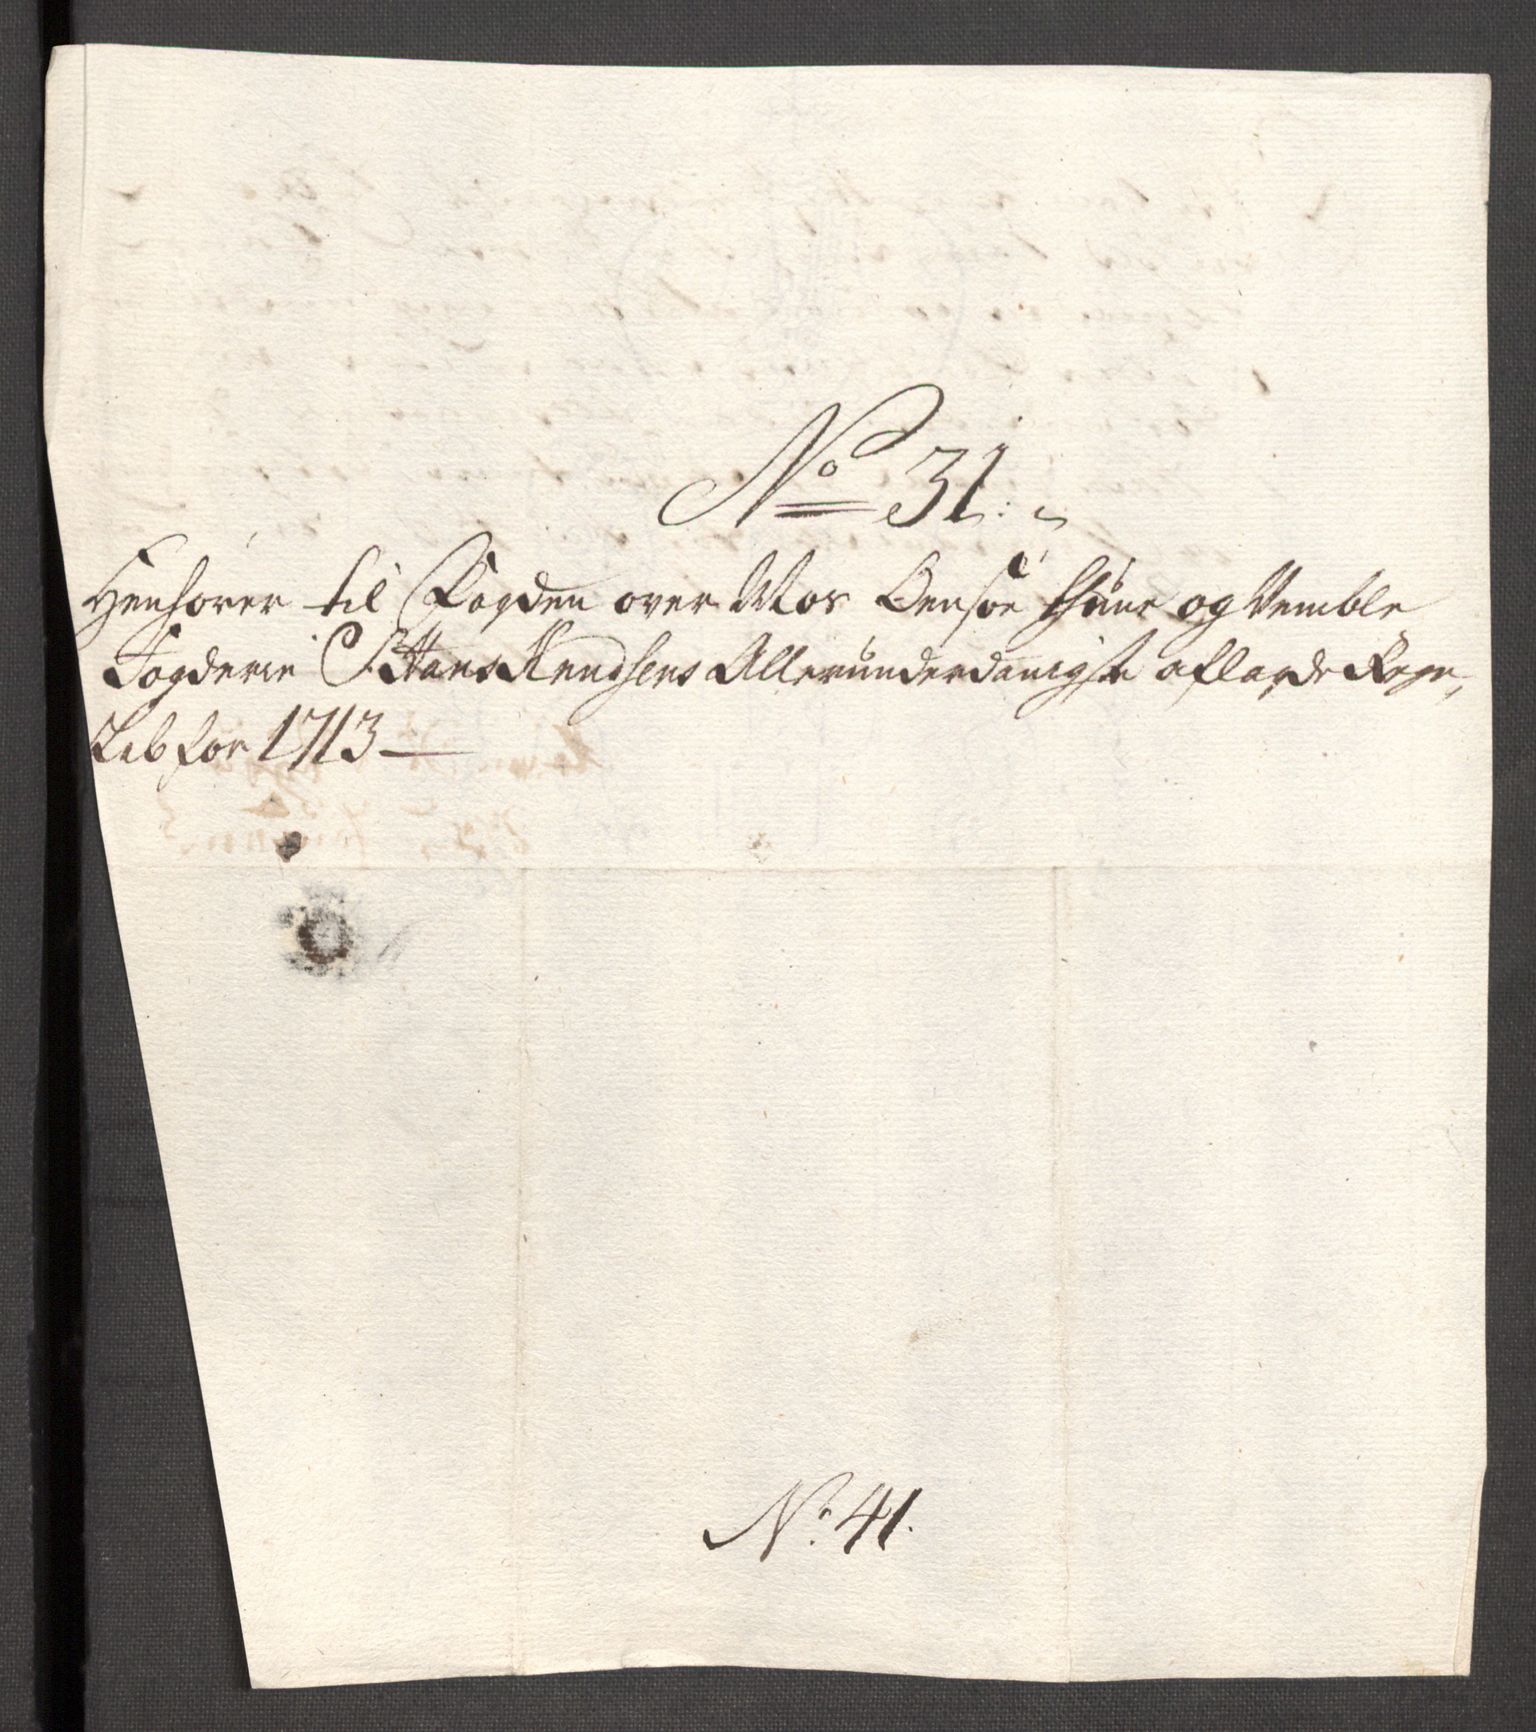 No 31.
Henhører til Fogden over Mos Onsøe thune og Vemble
Fogderie Sr Hans Knudsens Allerunderdanigste aflagde Regn-
skab for 1713
No: 41.